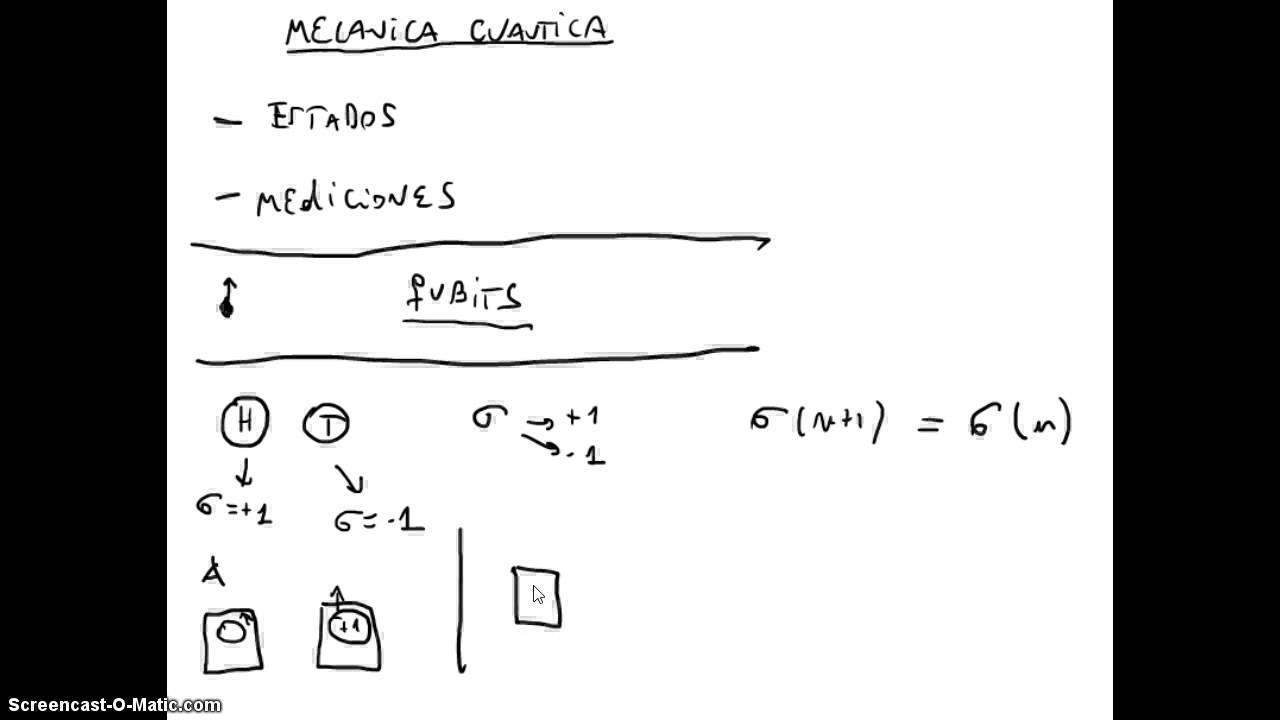 MECANICA CUANTICA
- ESTADOS
- MEDICIONES
qUBiTS
H T σ → +1 σ(n+1) = σ(n)
→ -1
σ=+1 σ=-1
A
+1
Screencast-O-Matic.com